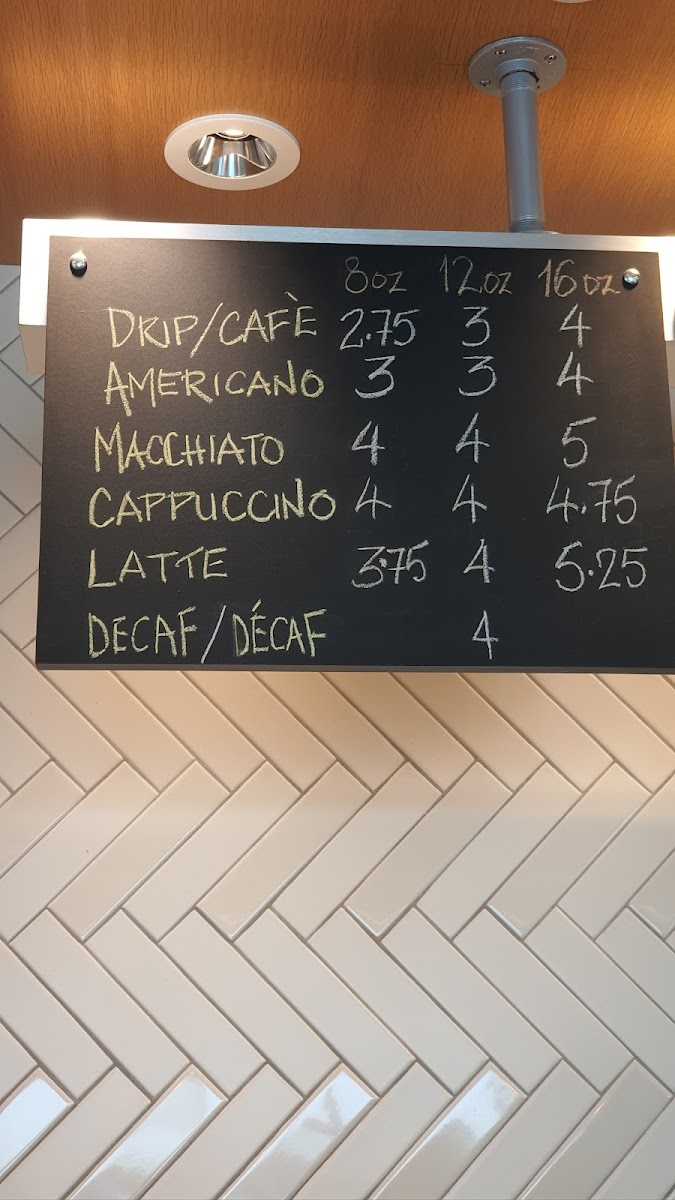 8oz 12oz 16oz
DRIP/CAFÈ 2.75 3 4
AMERICANO 3 3 4
MACCHIATO 4 4 5
CAPPUCCINO 4 4 4.75
LATTE 3.75 4 5.25
DECAF/DÉCAF 4